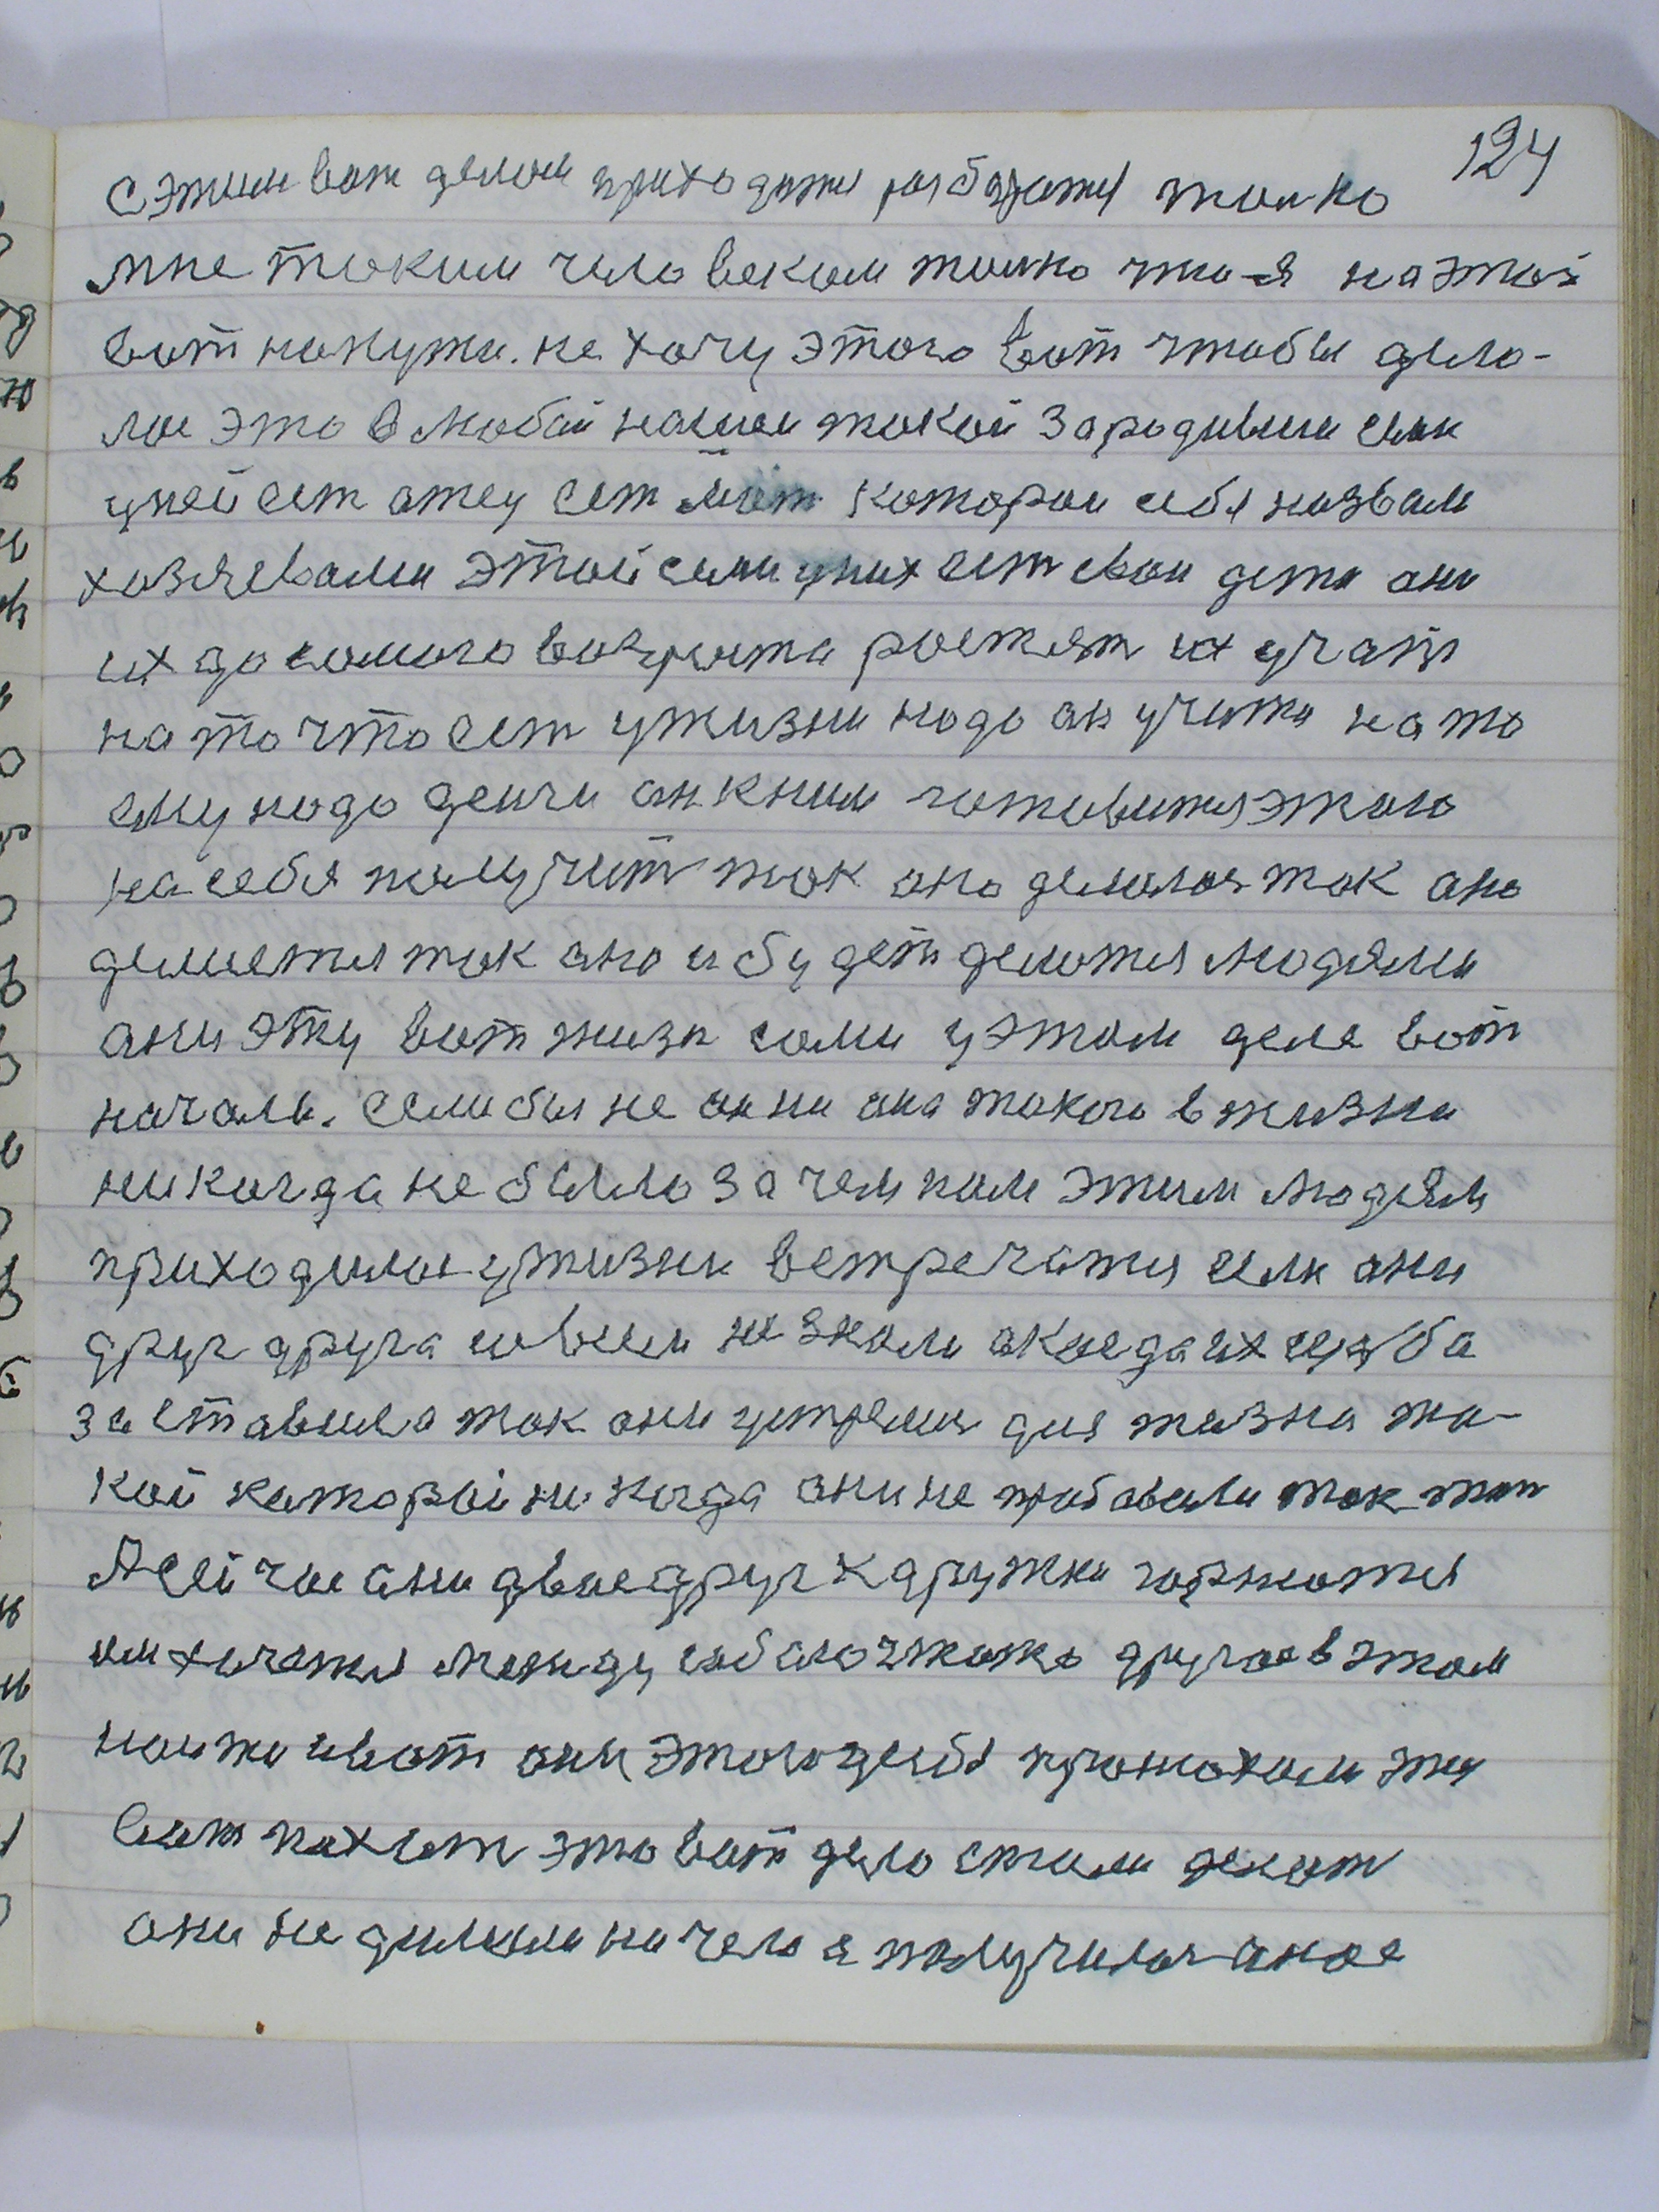 124
с этим вот делом приходится разбератся толко
мне таким человеком толко что-я на этой
вот на пути. не хочу этого вот чтобы дела-
лос это в любой нашей такой зародившися
у ней ест атец ест мат которои себя назвали
хозяевами этой семи у них ест свои дети ани
их до самого возроста растят их учат
на то что ест у жизни надо ан учится на то
ему надо денги ан к ним готовится этаго
на себя палучит так ано делалос так ано
делается так ано и будет делатся людями
ани эту вот жизн сами у этом деле вот
начали. если бы не ани ана такого в жизни
никогда не было зачем нам этим людям
приходилос у жизни встречатся если ани
друг друга совсем не знали а когда их судба
заставила так ани устремис для жизни та-
кой каторой никогда ани не пробавали так жит
А сейчас ани двое друг к дружки горнются
между сабаю чтото другое в этом
ани этого
вот это вот дело стали делат
ани не думали ничего а получилос аное